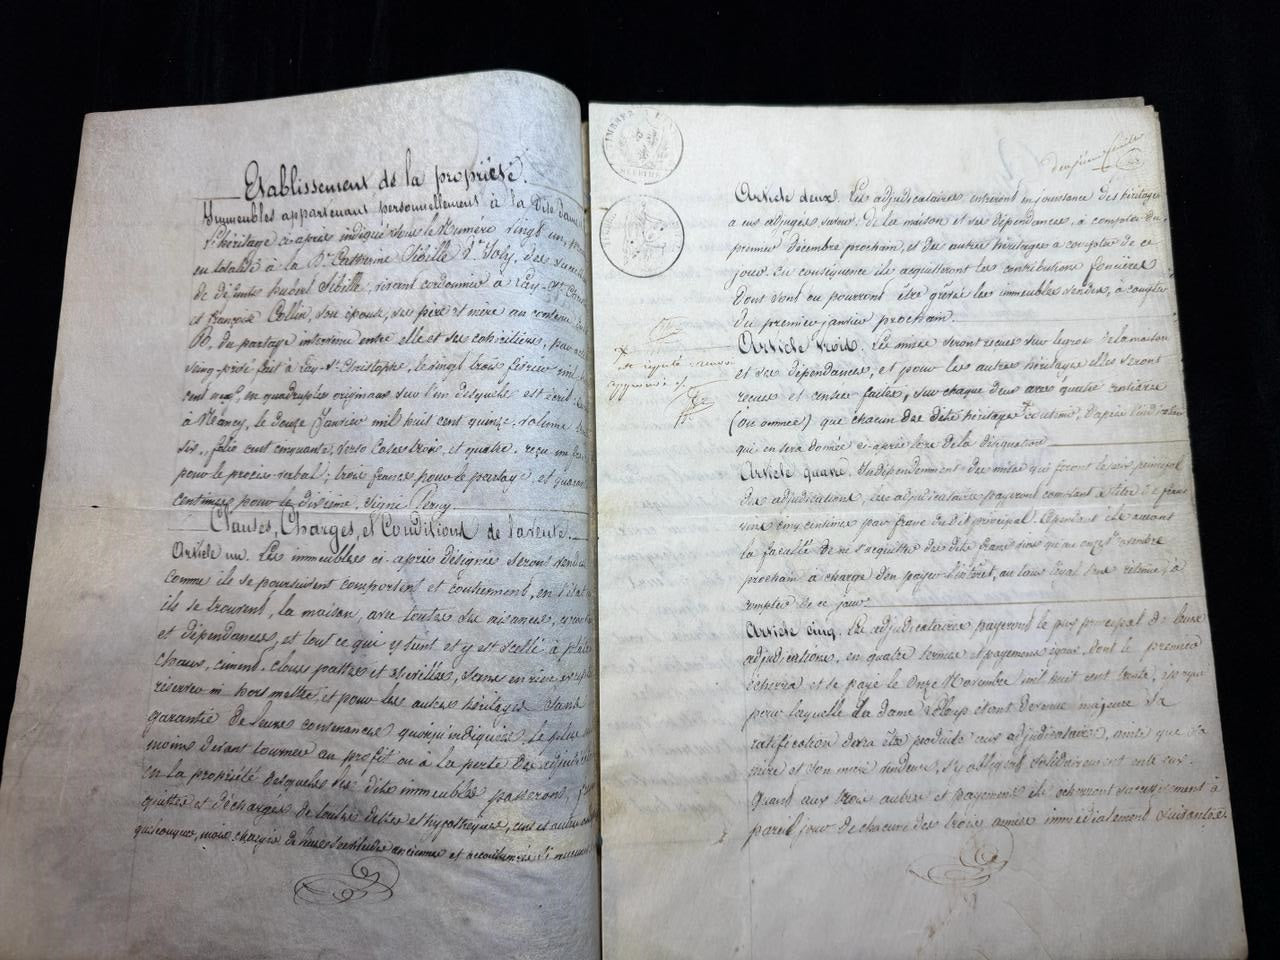 Etablissement de la propriété.
Immeubles appartenant personnellement à la dite Dame
L'héritage ci-après indiqué sous le Numéro Vingt un,
en totalité à la De. Catherine Sibille Ve. Joly, des
de défunts hubert Sibille, vivant cordonnier à Lay-St. Chris
et françoise Collin, son épouse, ses père et mère au contenu
B, du partage intervenu entre elle et ses cohéritiers, par acte
seing-privé fait à Lay-St. Christophe, le vingt trois février mil
cent neuf, en quadruples originaux sur l'un desquels est écrit
à Nancy, le douze Janvier mil huit cent quinze, volume
six, folio cent cinquante, verso cases trois, et quatre, reçu un franc
pour le procès-verbal; trois francs pour le partage, et quarante
centimes pour le dixième, Signé
Clauses, Charges, et Conditions de la vente.
Article un. Les immeubles ci-après désignés seront vendus
comme ils se poursuivent comportent et contiennent, en l'état
ils se trouvent, la maison, avec toutes ses aisances,
et dépendances, et tout ce qui y tient et y est scellé à plâtre
chaux, ciment, clous, pattes et chevilles, sans en rien
réserver ni hors mettre, et pour les autres héritages sans
garantie de leurs contenances quoiqu'indiquées, le plus
moins devant tourner au profit ou à la perte des adjudicataires
en la propriété desquels les dits immeubles passeront,
quittes et déchargés de toutes dettes et hypothèques, cens et autres
quelconques, mais chargés de leurs servitudes anciennes et accoutumées
deuxième
Article deux. Les adjudicataires entreront en jouissance des héritages
à eux adjugés savoir: de la maison et ses dépendances, à compter du
premier décembre prochain, et des autres héritages à compter de ce
jour. En conséquence ils acquitteront les contributions foncières
dont sont ou pourront être grévés les immeubles vendus, à compter
du premier janvier prochain.
Article trois. Les mises seront reçues sur le gros de la maison
et ses dépendances, et pour les autres héritages elles seront
reçues et censées faites, sur chaque deux ares quatre centiares
(ou ommée) que chacun des dits héritages contient, d'après l'indication
qui en sera donnée ci-après lors de la désignation
Article quatre. Indépendamment des mises qui feront le prix principal
des adjudications, les adjudicataires payeront comptant à titre de francs
vins cinq centimes par franc du dit principal. Cependant ils auront
la faculté de ne s'acquitter des dits francs vins qu'au onze Novembre
prochain à charge d'en payer l'intérêt, au taux légal sans retenue, à
compter de ce jour.
Article cinq. Les adjudicataires payeront le prix principal de leurs
adjudications, en quatre termes et payemens égaux, dont le premier
écherra et se paye le onze Novembre mil huit cent trente, époque
pour laquelle la dame Leloup étant devenue majeure sa
ratification devra être produite aux adjudicataires, ainsi que sa
mère et son mari vendeurs, s'y obligent solidairement entre eux.
Quant aux trois autres et payemens ils écherront successivement à
pareil jour de chacune des trois années immédiatement suivantes.